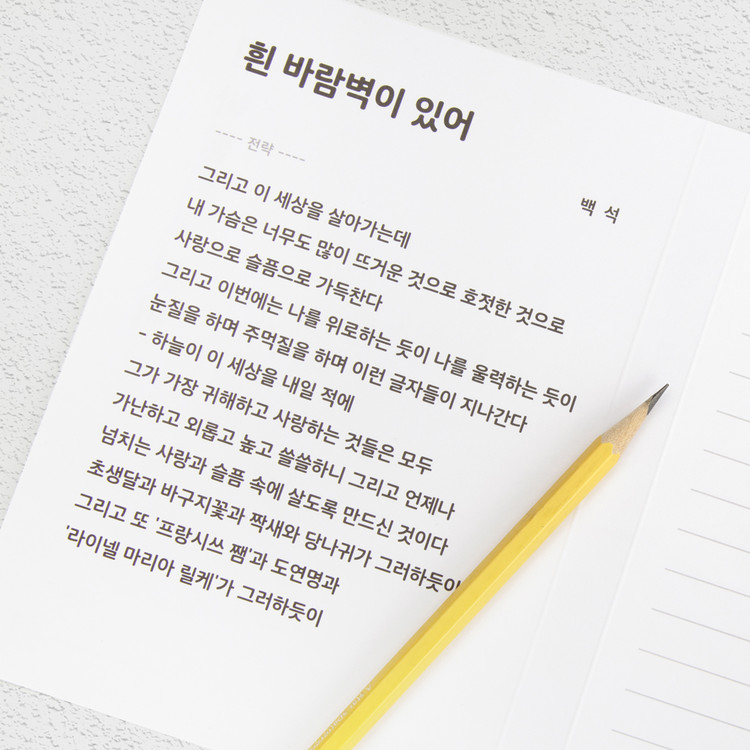 흰 바람벽이 있어
---- 전략 ----
백 석
그리고 이 세상을 살아가는데
내 가슴은 너무도 많이 뜨거운 것으로 호젓한 것으로
사랑으로 슬픔으로 가득찬다
그리고 이번에는 나를 위로하는 듯이 나를 울력하는 듯이
눈질을 하며 주먹질을 하며 이런 글자들이 지나간다
- 하늘이 이 세상을 내일 적에
그가 가장 귀해하고 사랑하는 것들은 모두
가난하고 외롭고 높고 쓸쓸하니 그리고 언제나
넘치는 사랑과 슬픔 속에 살도록 만드신 것이다
초생달과 바구지꽃과 짝새와 당나귀가 그러하듯이
그리고 또 '프랑시쓰 쨈'과 도연명과
'라이넬 마리아 릴케'가 그러하듯이